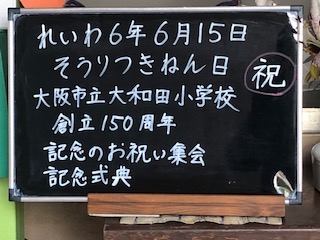 れいわ6年6月15日
そうりつきねん日
祝
大阪市立大和田小学校
創立150周年
記念のお祝い集会
記念式典